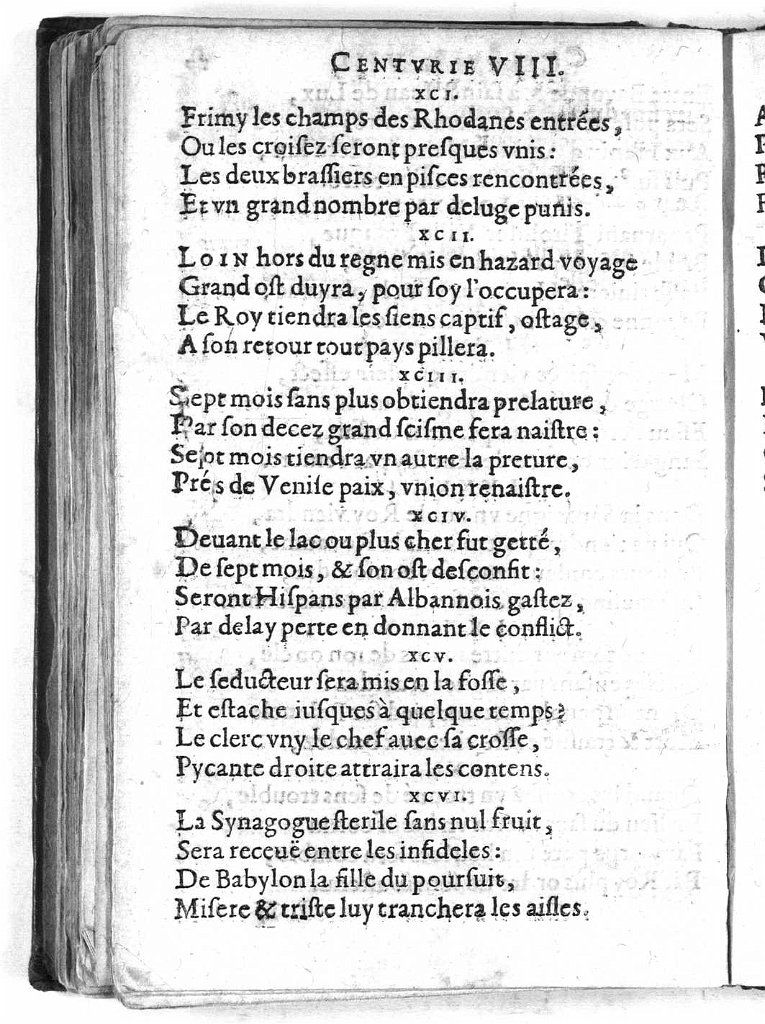 CENTVRIE VIII.
XCI.
Frimy les champs des Rhodanes entrées,
Ou les croisez seront presques vnis:
Les deux brassiers en pisces rencontrées,
Et vn grand nombre par deluge punis.
XCII.
LOIN hors du regne mis en hazard voyage
Grand ost duyra, pour soy l'occupera:
Le Roy tiendra les siens captif, ostage,
A son retour tout pays pillera.
XCIII.
Sept mois sans plus obtiendra prelature,
Par son decez grand scisme fera naistre:
Sept mois tiendra vn autre la preture,
Prés de Venise paix, vnion renaistre.
XCIV.
Deuant le lac ou plus cher fut getté,
De sept mois, & son ost desconfit:
Seront Hispans par Albannois gastez,
Par delay perte en donnant le conflict.
XCV.
Le seducteur sera mis en la fosse,
Et estache iusques à quelque temps:
Le clerc vny le chef auec sa crosse,
Pycante droite attraira les contens.
XCVI.
La Synagogue sterile sans nul fruit,
Sera receuë entre les infideles:
De Babylon la fille du poursuit,
Misere & triste luy tranchera les aisles.